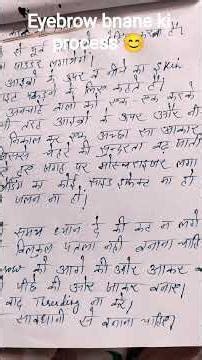 Eyebrow bnane ki
process 😊
पाउडर लगायेंगे।
आइब्रो के ऊपर व नीचे का skin
के लिए कहते है।
बालों को एक एक करके
तरह आइब्रो के ऊपर और नी
निकाल कर एक अच्छा सा आकार
चेहरे की सुन्दरता बढ़ जाती
इस जगह पर मॉइस्चराइजर लगा
का कोई साइड इफेक्ट ना हो
जलन ना हो।
समय ध्यान दे की कट न लगे
बिलकुल पतला नहीं बनाना चाहि
को आगे की ओर आकर
पीछे की ओर जाकर बनाए।
बाद Threading ना करे।
सावधानी से बनाना चाहिए।